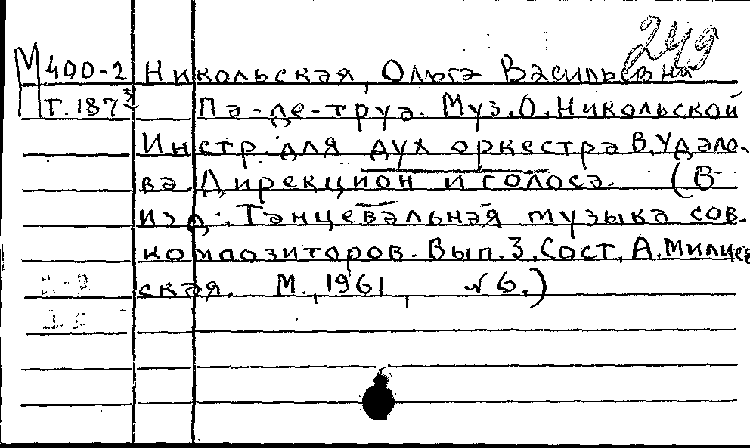 249
М 400-2 Никольская, Ольга Васильевна
Г. 187³ Па-де-труа. Муз. О. Никольской
Инстр. для дух оркестра В. Удало-
ва. Дирекцион и голоса. (В
изд: Танцевальная музыка сов-
композиторов. Вып. 3. Сост. А. Милиев
ская. М., 1961, √6.)